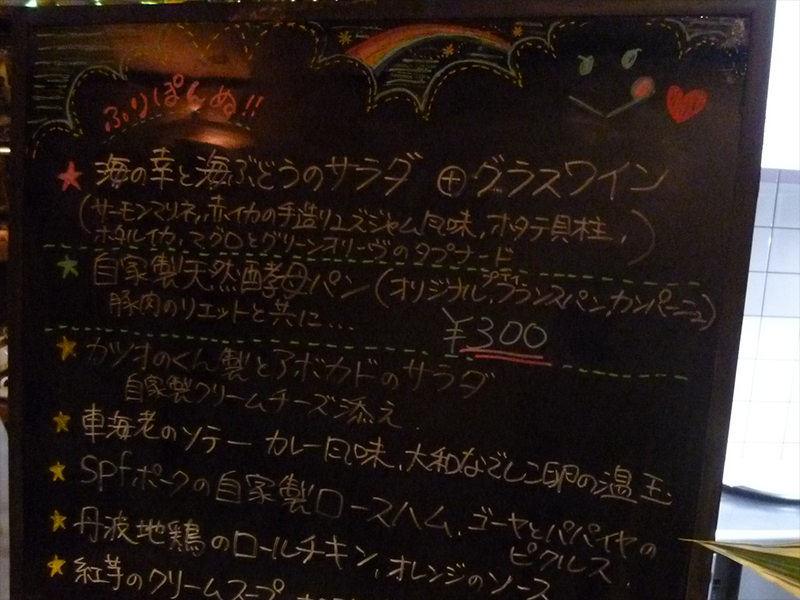 ふりぽんぬ!!
★海の幸と海ぶどうのサラダ ⊕グラスワイン
(サーモンマリネ,赤イカの手造りユズジャム風味,ホタテ貝柱,
ホタルイカ,マグロとグリーンオリーヴのタプナード)
★自家製天然酵母パン(オリジナル,プティフランスパン,カンパーニュ)
豚肉のリエットと共に… ¥300
★カツオのくん製とアボカドのサラダ
自家製クリームチーズ添え.
★車海老のソテー カレー風味,大和なでしこ卵の温玉
★spfポークの自家製ロースハム,ゴーヤとパパイヤの
ピクルス.
★丹波地鶏のロールチキン,オレンジのソース
★紅芋のクリームスープ